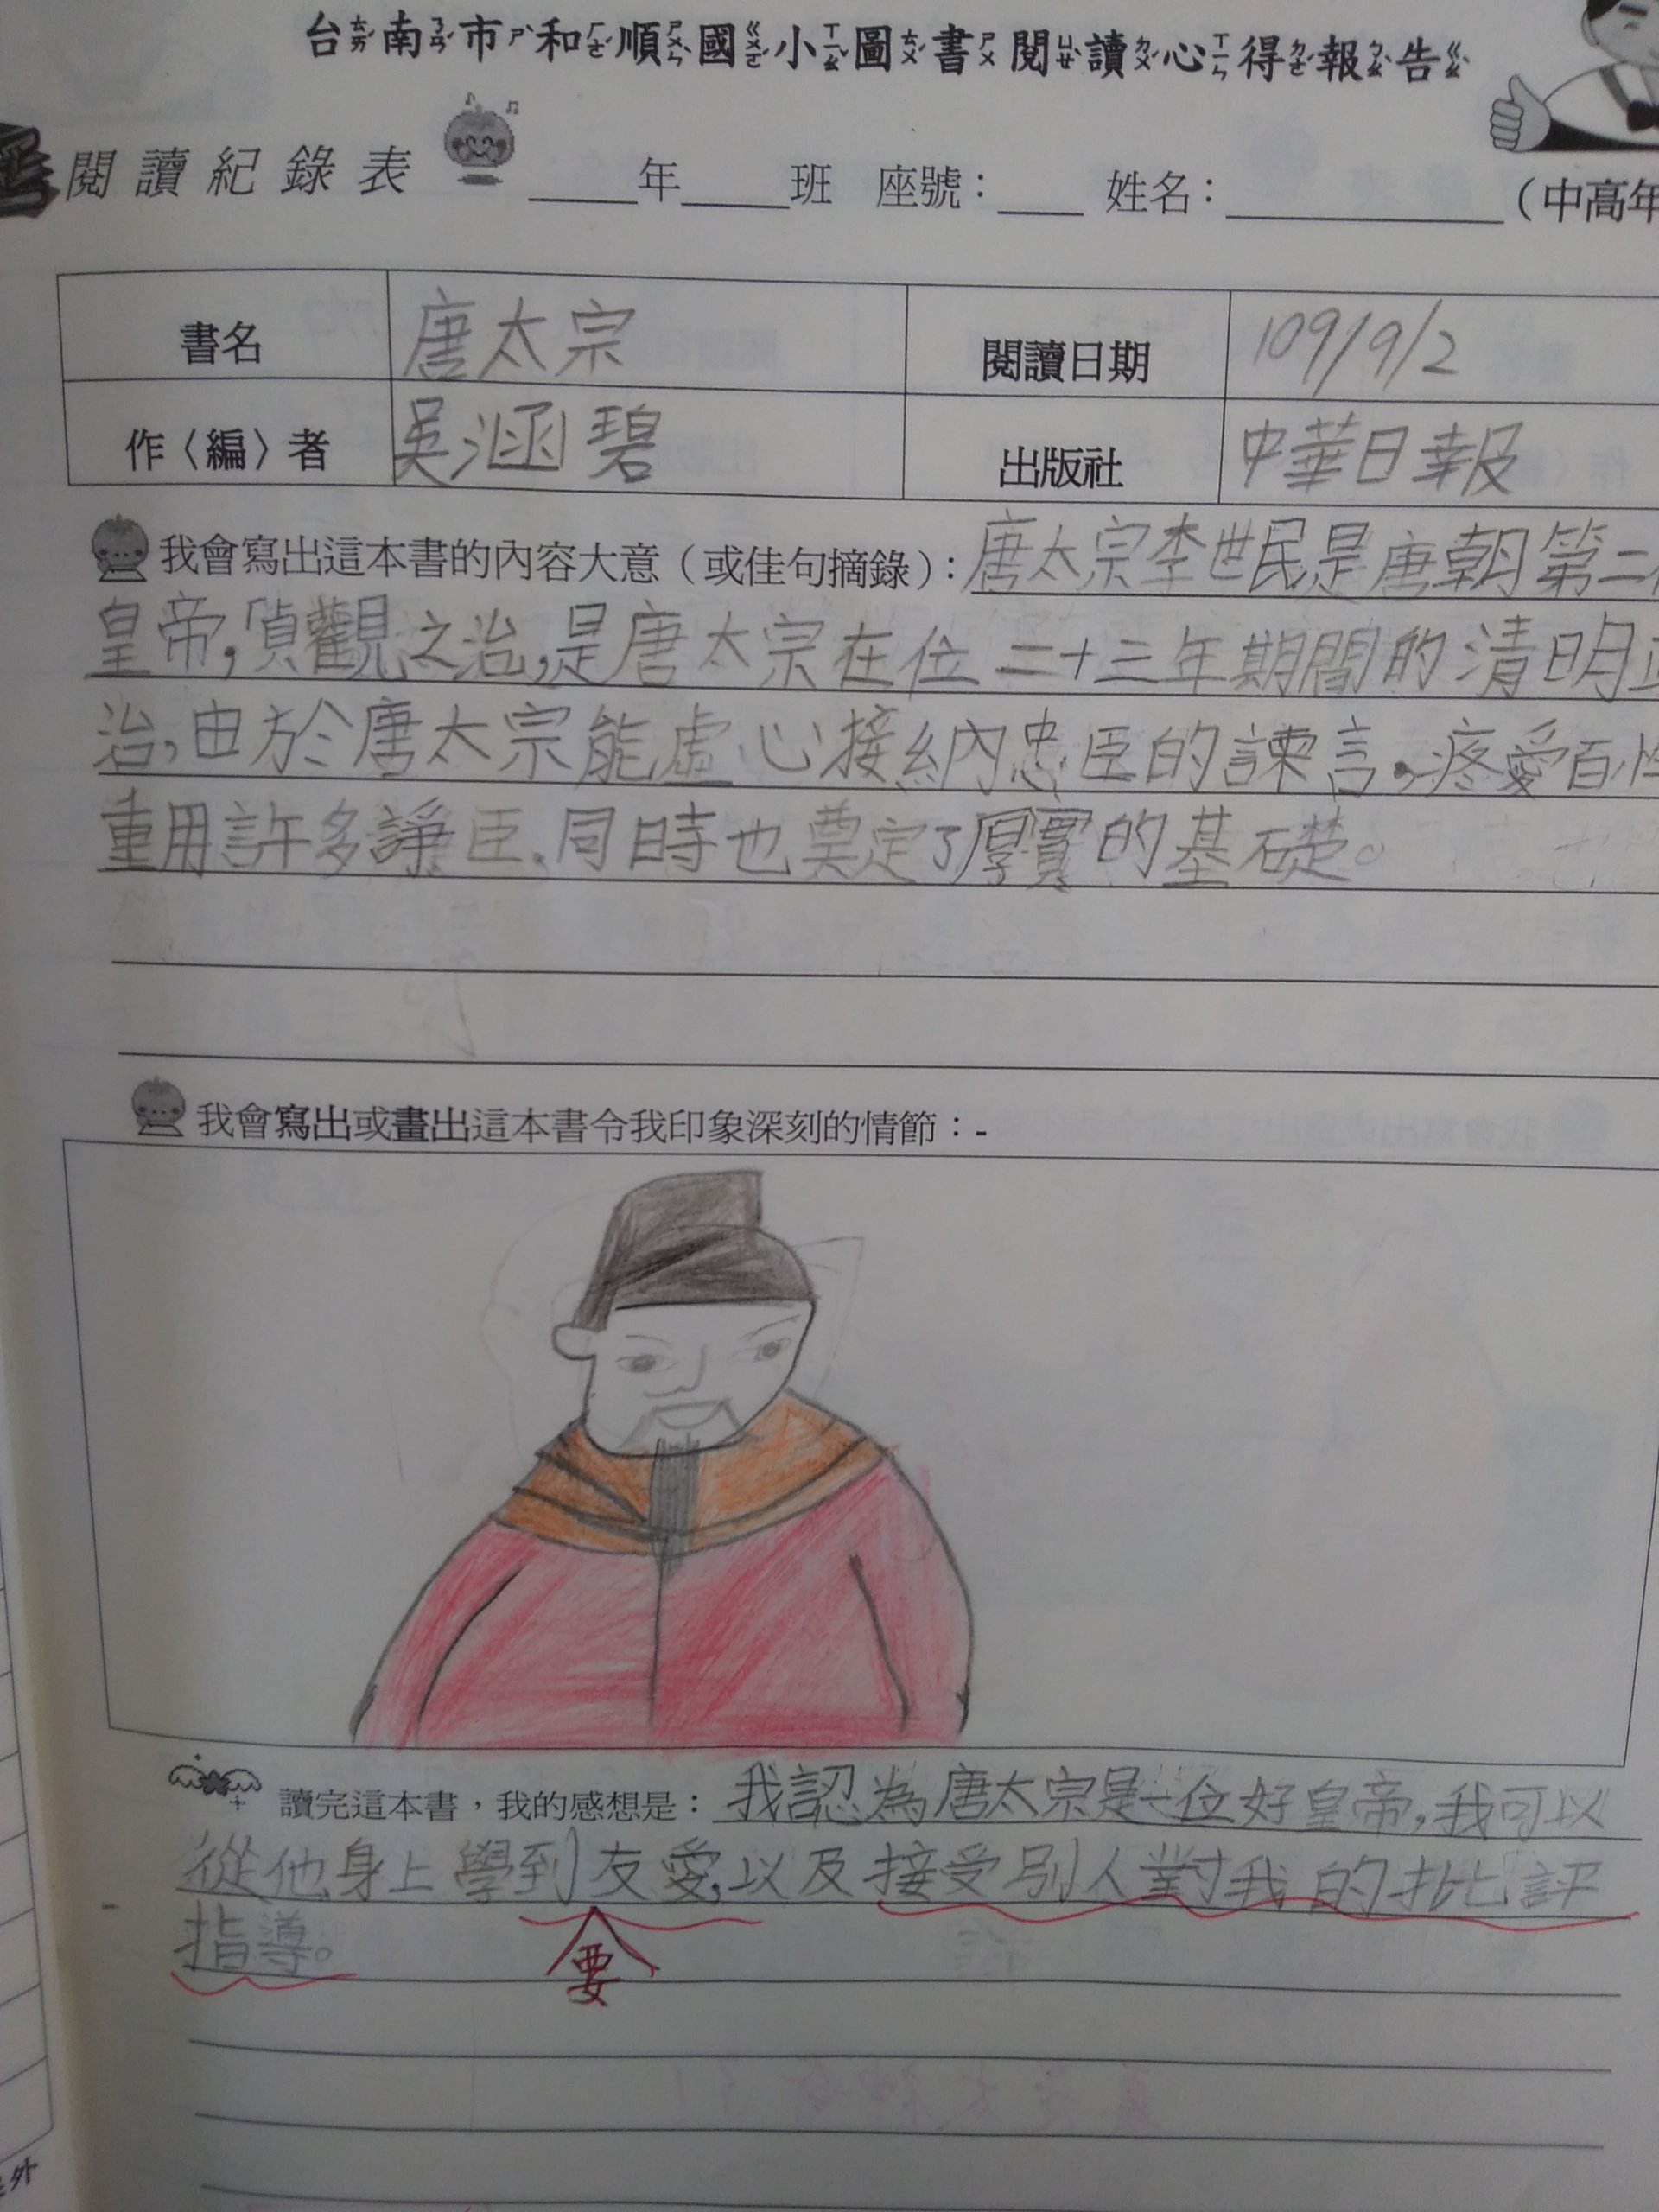 台南市和順國小圖書閱讀心得報告
閱讀紀錄表 ____年____班 座號：___ 姓名：__________（中高年
書名 唐太宗 閱讀日期 109/9/2
作〈編〉者 吳涵碧 出版社 中華日報
我會寫出這本書的內容大意（或佳句摘錄）：唐太宗李世民是唐朝第二
皇帝，偵觀之治，是唐太宗在位二十三年期間的清明
治，由於唐太宗能虛心接納忠臣的諫言，疼愛百
重用許多諍臣、同時也奠定了厚實的基礎。
我會寫出或畫出這本書令我印象深刻的情節：-
讀完這本書，我的感想是：我認為唐太宗是一位好皇帝，我可以
從他身上學到友愛，以及接受別人對我的批評
要
指導。
外